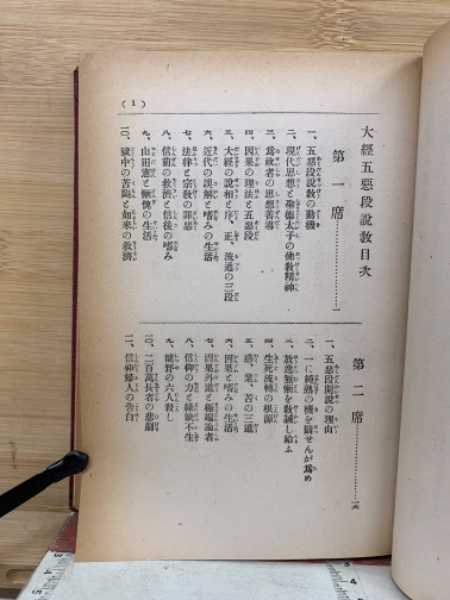 (1)
大經五惡段說敎目次
第一席…………一
一、五惡段說敎の動機
二、現代思想と聖德太子の佛敎精神
三、爲政者の思想善導
四、因果の理法と五惡段
五、大經の說相と序、正、流通の三段
六、近代の誤解と嗜みの生活
七、法律と宗敎の罪惡
八、信前の救濟と信後の嗜み
九、山田憲と慚愧の生活
一〇、獄中の苦悶と如來の救濟
第二席…………一六
一、五惡段開說の理由
二、一に純熟の機を攝せんが爲め
三、放逸無慚を敎誡し給ふ
四、生死流轉の根源
五、惑、業、苦の三道
六、因果と嗜みの生活
七、因果外道と極端論者
八、信仰の力と
九、龍野の六人殺し
一〇、二百萬長者の悲劇
一一、信仰婦人の告白